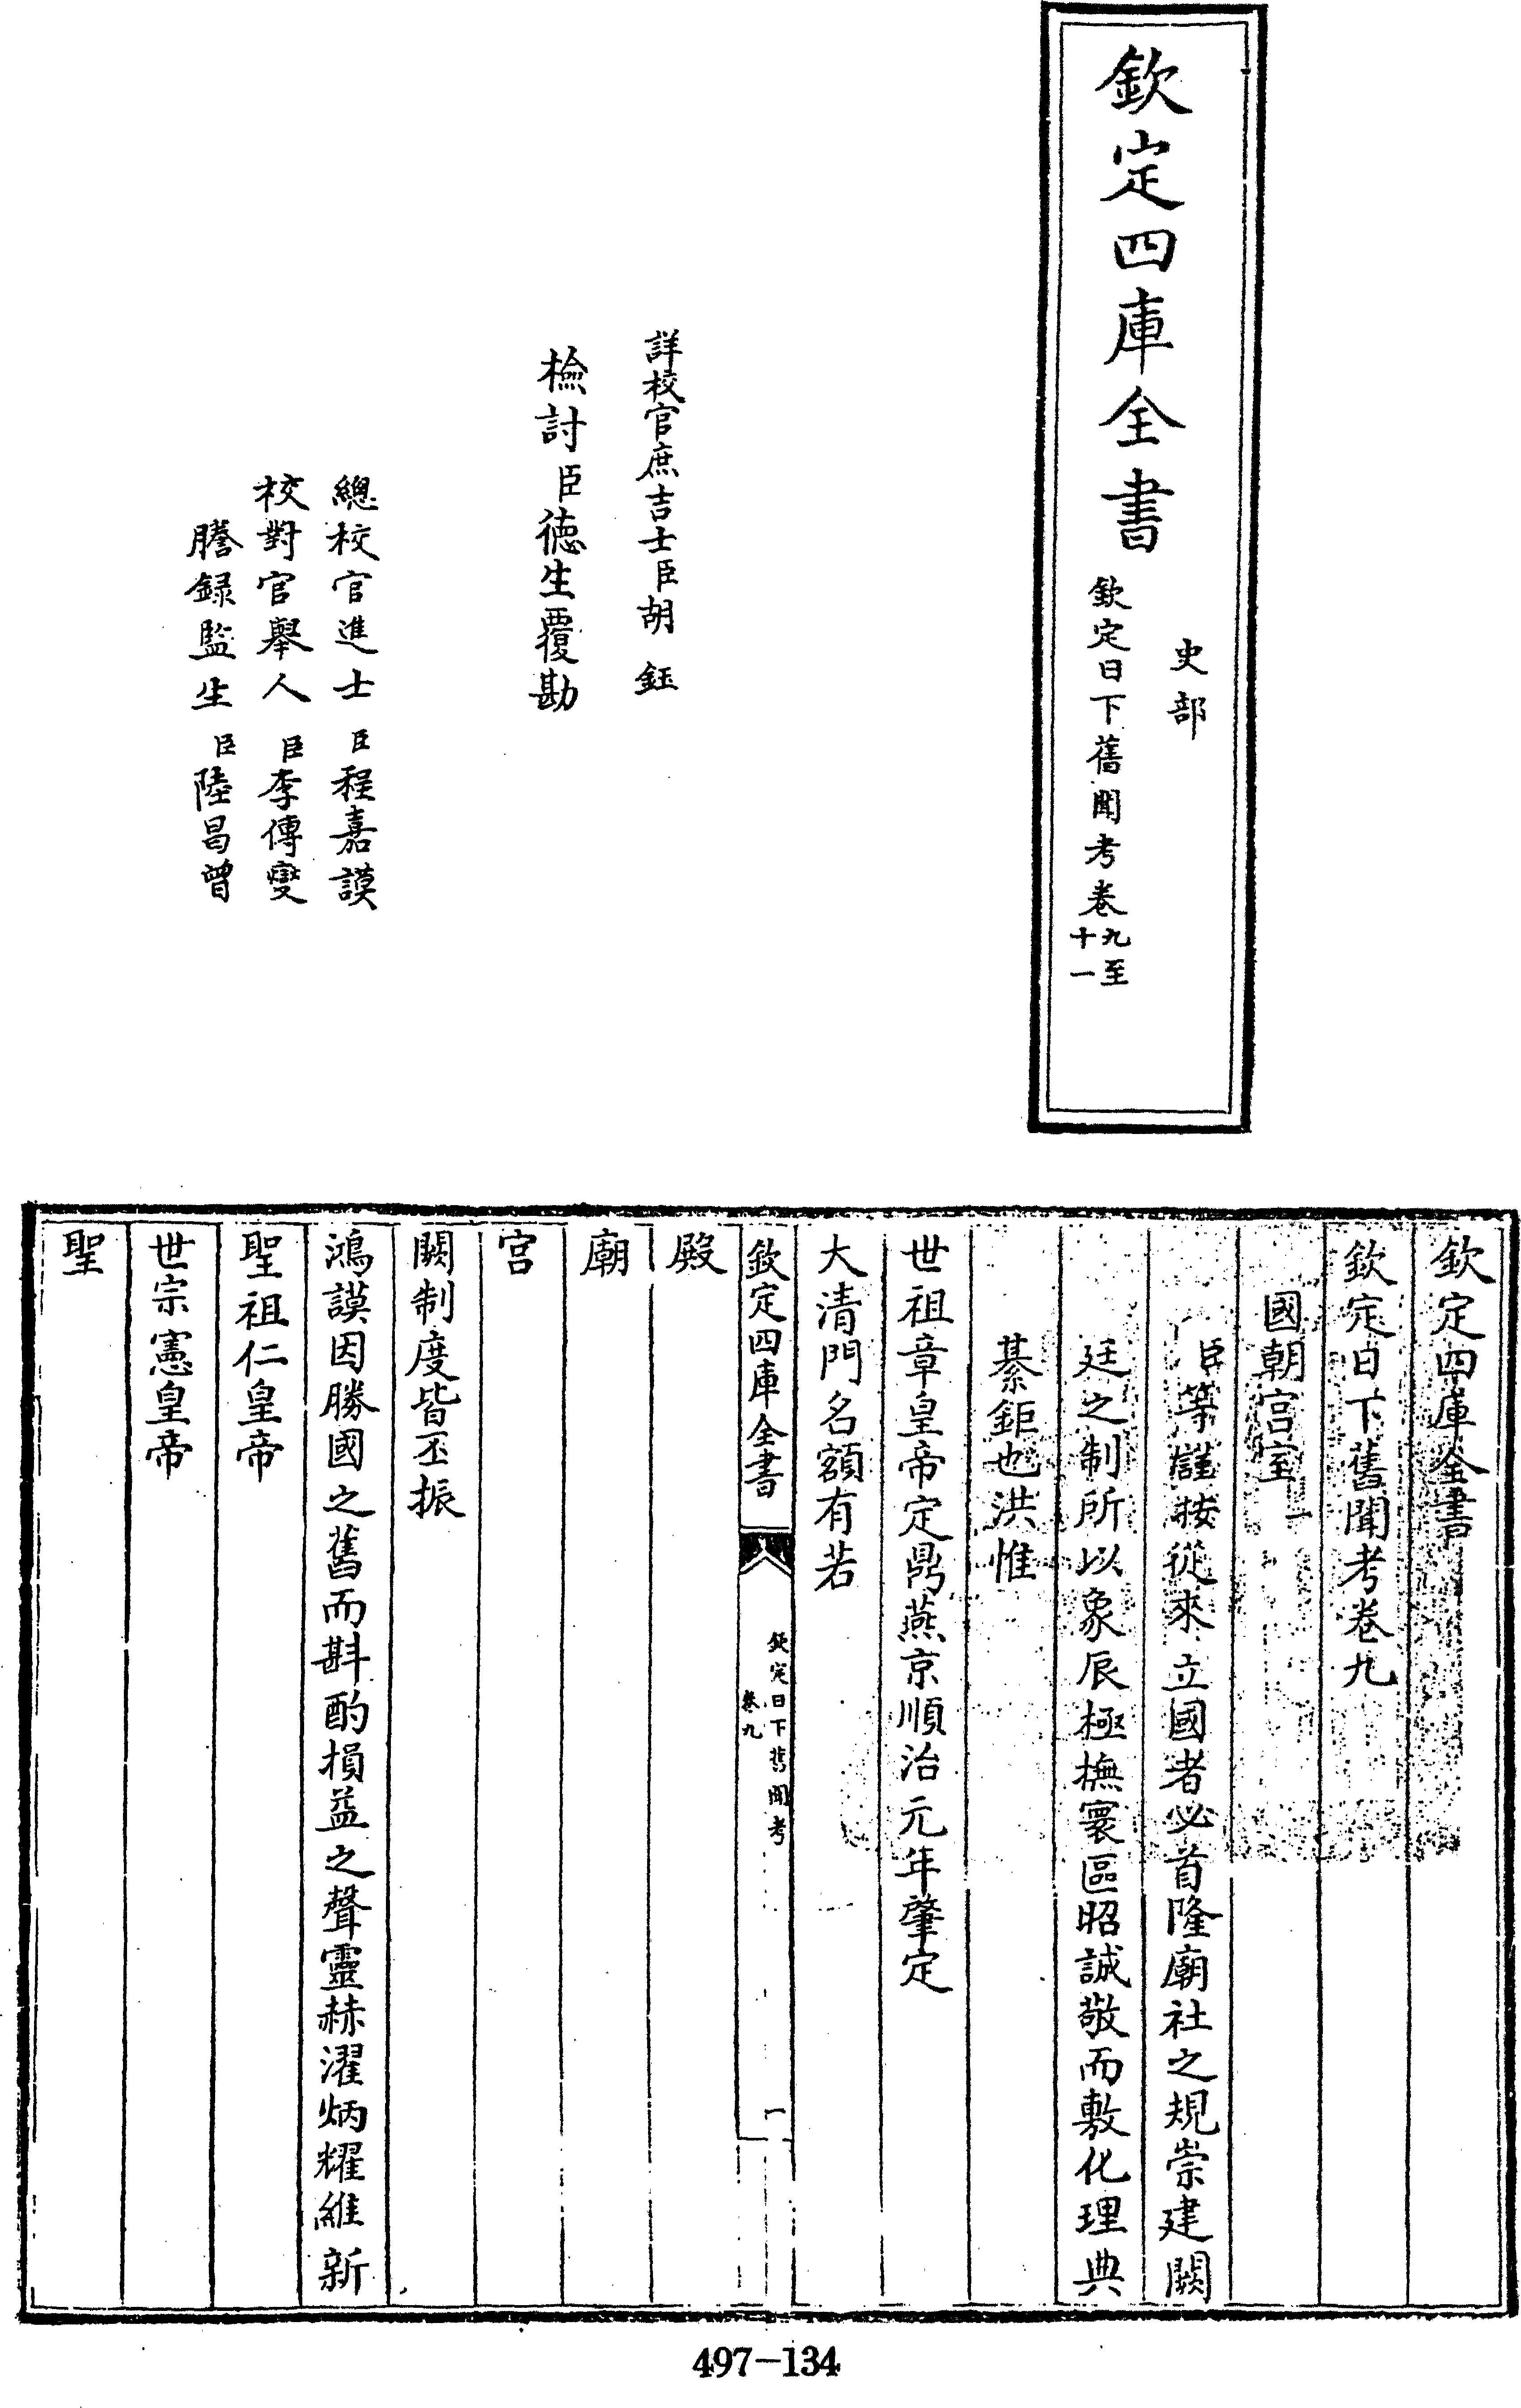 欽定四庫全書
史部
欽定日下舊聞考卷九至十一
詳校官庶吉士臣胡鈺
檢討臣德生覆勘
總校官進士臣程嘉謨
校對官舉人臣李傳燮
謄錄監生臣陸昌曾
欽定四庫全書
欽定日下舊聞考卷九
國朝宫室一
臣等謹按從來立國者必首隆廟社之規崇建闕
廷之制所以象辰極撫寰區昭誠敬而敷化理典
綦鉅也洪惟
世祖章皇帝定鼎燕京順治元年肇定
大清門名額有若
欽定四庫全書
欽定日下舊聞考
卷九
一
殿
廟
宫
闕制度皆丕振
鴻謨因勝國之舊而斟酌損益之聲靈赫濯炳耀維新
聖祖仁皇帝
世宗憲皇帝
聖
497-134